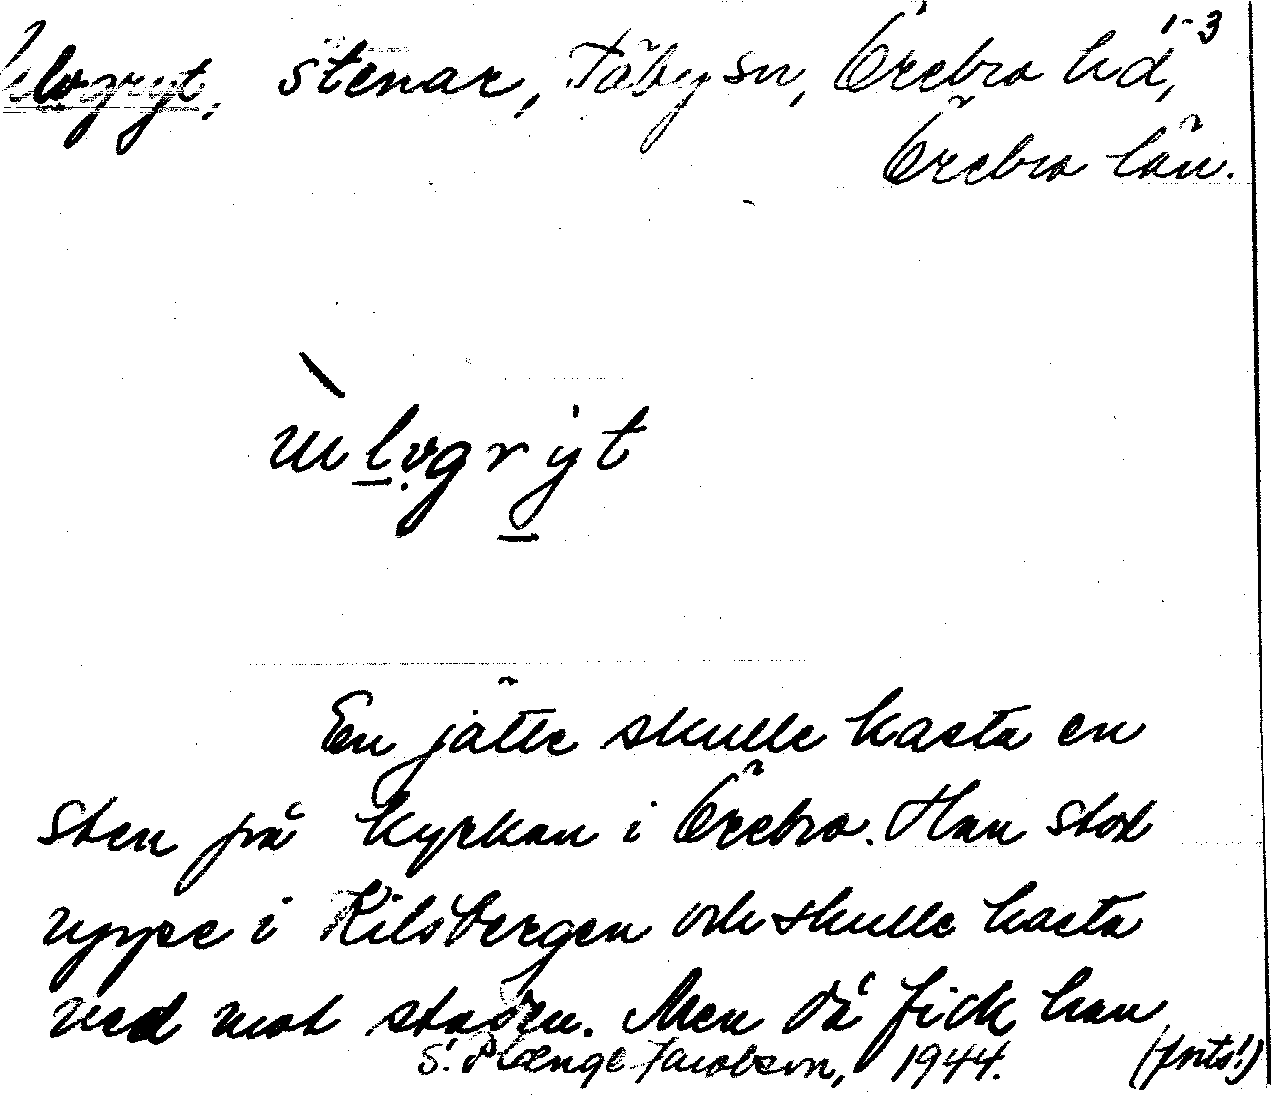 1-3
stenar, Täby sn, Örebro hd,
Örebro län.
En jätte skulle kasta en
sten på kyrkan i Örebro. Han stod
uppe i Kilsbergen och skulle kasta
ned mot staden. Men då fick han
S. Plænge Jacobson, 1944. (forts!)